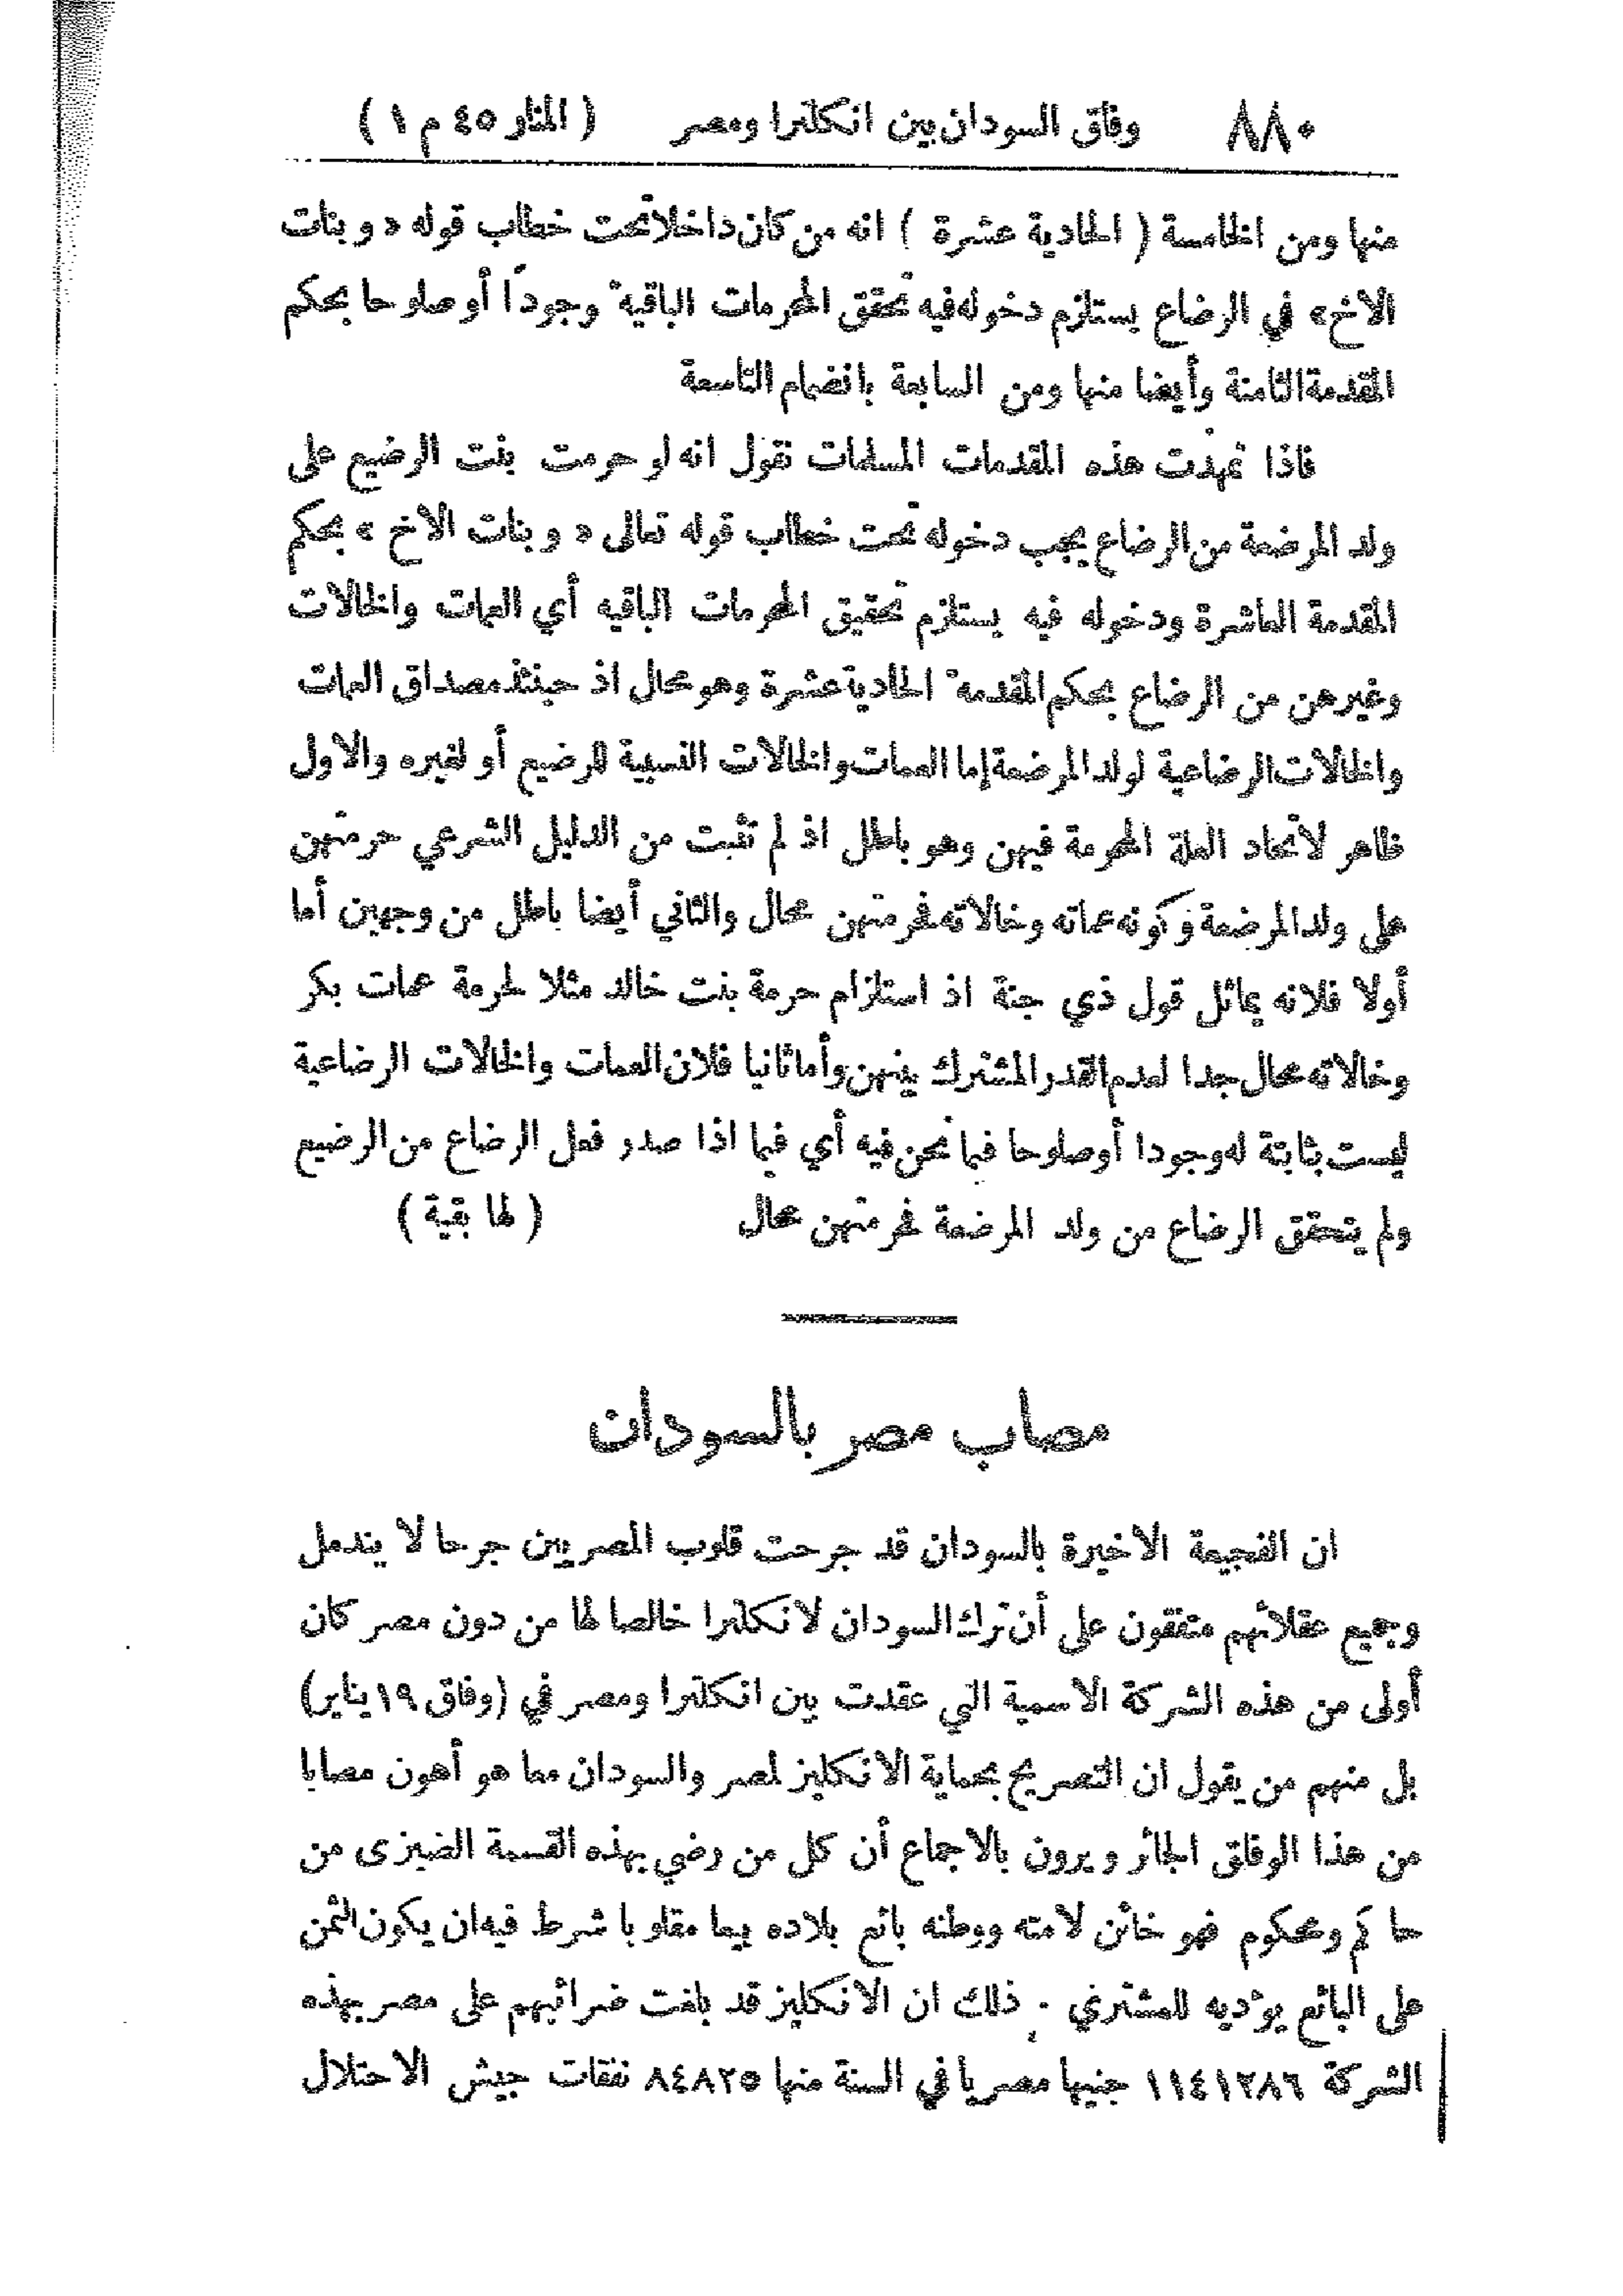 ٨٨٠ وفاق السودان بين انكلترا ومصر ( المنار ٤٥ م ١ )
منها ومن الخامسة ( الحادية عشرة ) انه من كان داخلا تحت خطاب قوله « وبنات
الاخ» في الرضاع يستلزم دخوله فيه تحقق المحرمات الباقية وجوداً أو صلوحا بحكم
المقدمة الثامنة وأيضا منها ومن السابعة بانضمام التاسعة
فاذا تمهدت هذه المقدمات المسلمات نقول انه لو حرمت بنت الرضيع على
ولد المرضعة من الرضاع يجب دخوله تحت خطاب قوله تعالى « وبنات الاخ » بحكم
المقدمة العاشرة ودخوله فيه يستلزم تحقيق المحرمات الباقيه أي العمات والخالات
وغيرهن من الرضاع بحكم المقدمة الحادية عشرة وهو محال اذ حينئذ مصداق العمات
والخالات الرضاعية لولد المرضعة إما العمات والخالات النسبية للرضيع أو لغيره والاول
ظاهر لاتحاد العلة المحرمة فيهن وهو باطل اذ لم تثبت من الدليل الشرعي حرمتهن
على ولد المرضعة وكونه عماته وخالاته فحرمتهن محال والثاني أيضا باطل من وجهين أما
أولا فلانه يماثل قول ذي جنة اذ استلزام حرمة بنت خالد مثلا لحرمة عمات بكر
وخالاته محال جدا لعدم القدر المشترك بينهن وأما ثانيا فلان العمات والخالات الرضاعية
ليست بثابتة له وجودا أو صلوحا فيما نحن فيه أي فيما اذا صدر فعل الرضاع من الرضيع
ولم يتحقق الرضاع من ولد المرضعة فحرمتهن محال ( لها بقية )
مصاب مصر بالسودان
ان الفجيعة الاخيرة بالسودان قد جرحت قلوب المصريين جرحا لا يندمل
وجميع عقلائهم متفقون على أن ترك السودان لانكلترا خالصا لها من دون مصر كان
أولى من هذه الشركة الاسمية التي عقدت بين انكلترا ومصر في (وفاق ١٩ يناير)
بل منهم من يقول ان التصريح بحماية الانكليز لمصر والسودان مما هو أهون مصابا
من هذا الوفاق الجائر ويرون بالاجماع أن كل من رضي بهذه القسمة الضيزى من
حاكم ومحكوم فهو خائن لامته ووطنه بائع بلاده بيعا مقلوبا شرط فيه ان يكون الثمن
على البائع يؤديه للمشتري . ذلك ان الانكليز قد بلغت ضرائبهم على مصر بهذه
الشركة ١١٤١٢٨٦ جنيها مصريا في السنة منها ٨٤٨٢٥ نفقات جيش الاحتلال